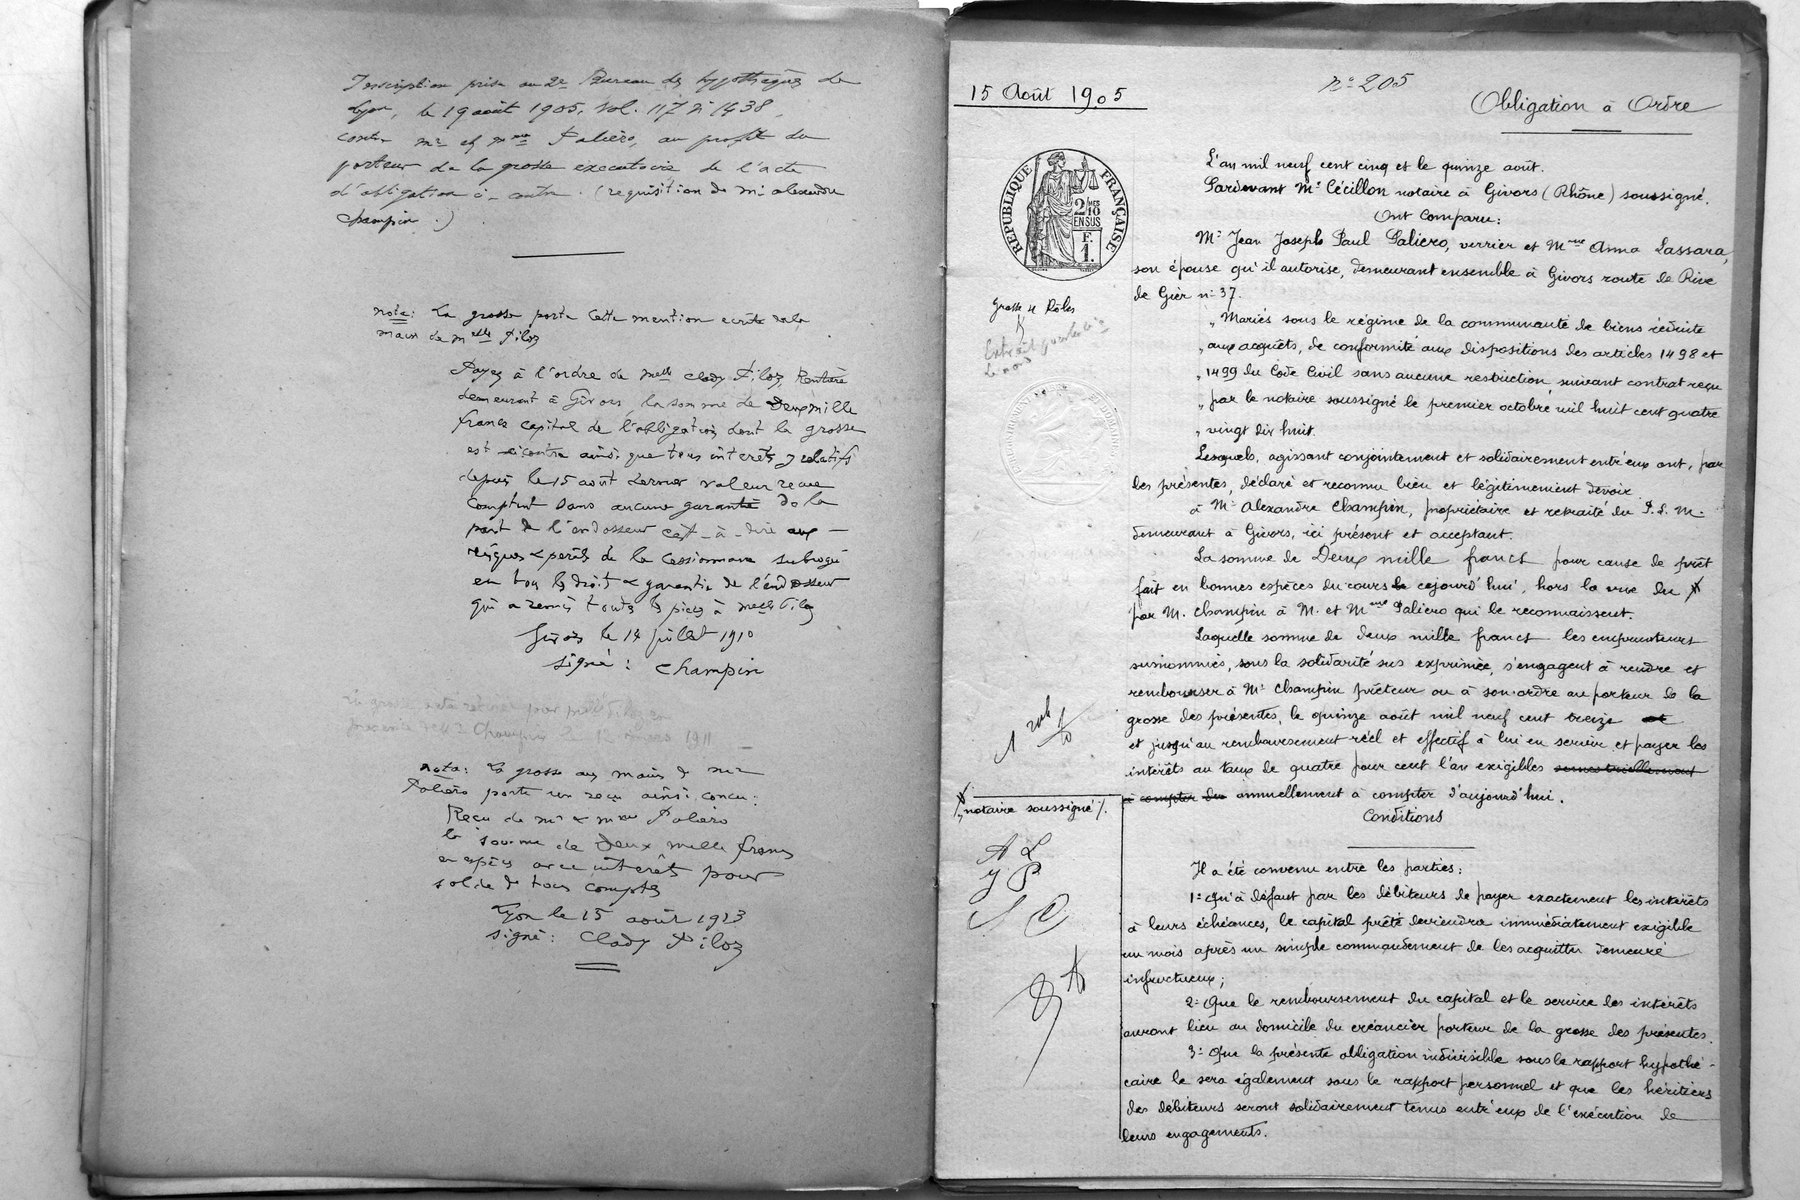 Inscription prise au 2e Bureau des hypothèques de
Lyon, le 19 août 1905, Vol. 117 n° 1438,
contre Mr et Mme Paliéro, au profit du
porteur de la grosse exécutoire de l'acte
d'obligation ci-contre. (requisition de Mr alexandre
Champin.)
nota: La grosse porte cette mention ecrite de la
main de Melle Piloz
Payez à l'ordre de Melle Clady Piloz, Rentière
demeurant à Givors, la somme de Deux mille
francs capital de l'obligation dont la grosse
est ci contre ainsi que tous intérêts y relatifs
depuis le 15 août dernier valeur reçue
comptant sans aucune garantie de la
part de l'endosseur c'est-à-dire aux
risques & perils de la Cessionnaire subrogé
en tous les droits & garantie de l'endosseur
qui a remis toutes les pièces à Melle Piloz
Givors le 14 juillet 1910
signé: Champin
La grosse a été retirée par Melle Piloz en
présence de Mr Champin le 12 mars 1911
nota: La grosse aux mains de Mr
Paliéro porte un reçu ainsi concu:
Reçu de Mr & Mme Paliéro
la somme de Deux mille francs
en espèces avec intérêts pour
solde de tous comptes
Lyon le 15 août 1913
signé: Clady Piloz
15 Août 1905
n° 205
Obligation à Ordre
RÉPUBLIQUE FRANÇAISE
2/10 MES
EN SUS
F.
1.
Grosse 4 Rôles
Extrait
L'an mil neuf cent cinq et le quinze août.
Pardevant Me Cécillon notaire à Givors (Rhône) soussigné.
Ont Comparu:
Mr Jean Joseph Paul Paliero, verrier et Mme Anna Lassara,
son épouse qu'il autorise, demeurant ensemble à Givors route de Rive
de Gier n° 37.
" Mariés sous le régime de la communauté de biens réduite
" aux acquêts, de conformité aux dispositions des articles 1498 et
" 1499 du Code Civil sans aucune restriction suivant contrat reçu
" par le notaire soussigné le premier octobre mil huit cent quatre
" vingt dix huit.
Lesquels, agissant conjointement et solidairement entr'eux ont, par
les présentes, déclaré et reconnu bien et légitimement devoir
à Mr Alexandre Champin, propriétaire et retraité du P.L.M.
demeurant à Givors, ici présent et acceptant.
La somme de Deux mille francs pour cause de prêt
fait en bonnes espèces du cours de cejourd'hui, hors la vue du X
par M. Champin à M. et Mme Paliero qui le reconnaissent.
Laquelle somme de deux mille francs les emprunteurs
susnommés, sous la solidarité sus exprimée, s'engagent à rendre et
rembourser à Mr Champin prêteur ou à son ordre au porteur de la
grosse des présentes, le quinze août mil neuf cent treize et
et jusqu'au remboursement réel et effectif à lui en servir et payer les
intérêts au taux de quatre pour cent l'an exigibles semestriellement
à compter du annuellement à compter d'aujourd'hui.
X notaire soussigné /.
A L
J P
A C
Conditions
Il a été convenu entre les parties:
1° Qu'à défaut par les débiteurs de payer exactement les intérêts
à leurs échéances, le capital prêté deviendra immédiatement exigible
un mois après un simple commandement de les acquitter demeuré
infructueux;
2° Que le remboursement du capital et le service des intérêts
auront lieu au domicile du créancier porteur de la grosse des présentes.
3° Que la présente obligation indivisible sous le rapport hypothé-
caire le sera également sous le rapport personnel et que les héritiers
des débiteurs seront solidairement tenus entr'eux de l'exécution de
leurs engagements.